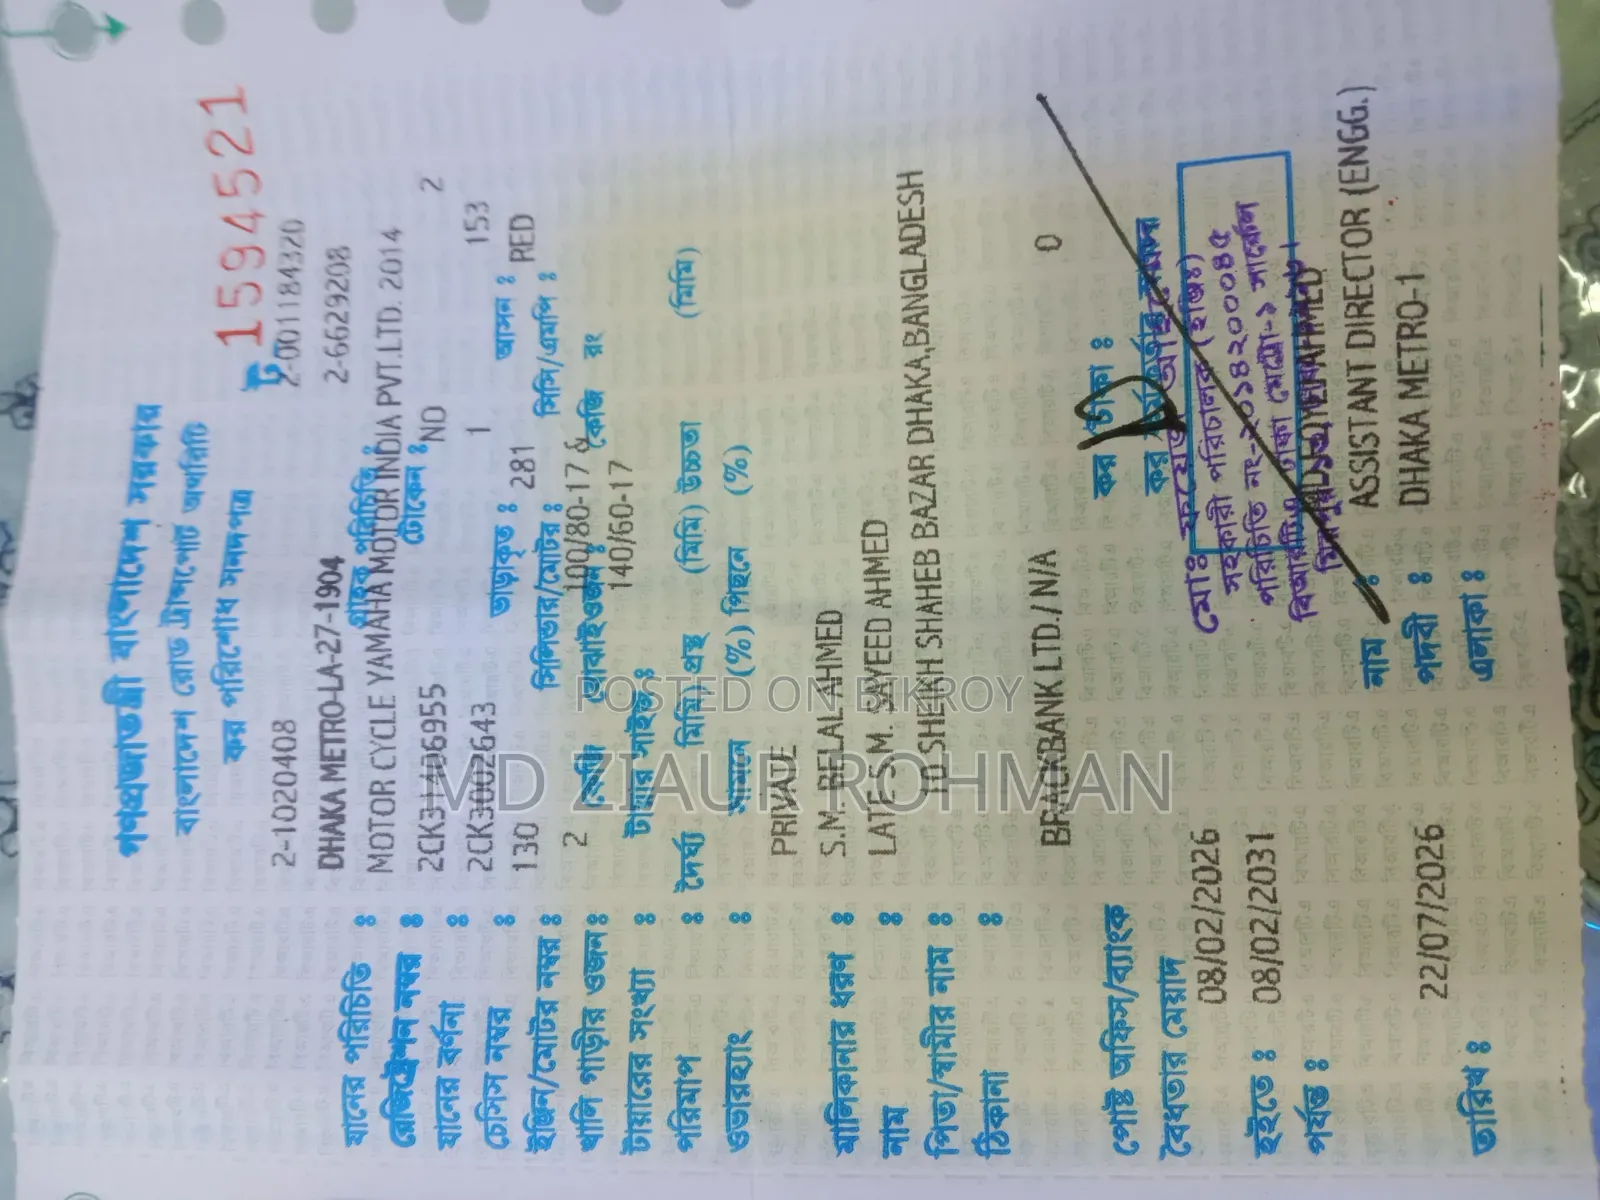 গণপ্রজাতন্ত্রী বাংলাদেশ সরকার
বাংলাদেশ রোড ট্রান্সপোর্ট অথরিটি
কর পরিশোধ সনদপত্র
ট 1594521
যানের পরিচিতি : 2-1020408 গ্রাহক পরিচিতি : 2-001184320
রেজিষ্ট্রেশন নম্বর : DHAKA METRO-LA-27-1904 টোকেন : 2-6629208
যানের বর্ণনা : MOTOR CYCLE YAMAHA MOTOR INDIA PVT.LTD. 2014
চেসিস নম্বর : 2CK31406955 ভাড়াকৃত : NO আসন : 2
ইঞ্জিন/মোটর নম্বর : 2CK3002643 সিলিন্ডার/মোটর : 1 সিসি/এমপি : 153
খালি গাড়ীর ওজন : 130 কেজি বোঝাই ওজন : 281 কেজি রং RED
টায়ারের সংখ্যা : 2 টায়ার সাইজ : 100/80-17 & 140/60-17
পরিমাপ : দৈর্ঘ্য (মিমি) প্রস্থ (মিমি) উচ্চতা (মিমি)
ওভারহ্যাং : সামনে (%) পিছনে (%)
মালিকানার ধরণ : PRIVATE
নাম : S.M. BELAL AHMED
পিতা/স্বামীর নাম : LATE S.M. SAYEED AHMED
ঠিকানা : 10 SHEIKH SHAHEB BAZAR DHAKA,BANGLADESH
পোষ্ট অফিস/ব্যাংক BRACKBANK LTD./ N/A কর টাকা : 0
বৈধতার মেয়াদ
হইতে : 08/02/2026
পর্যন্ত : 08/02/2031
তারিখ : 22/07/2026
মোঃ ফয়েজ আহমেদ
সহকারী পরিচালক (ইঞ্জিঃ)
পরিচিতি নং-২০১৪২০০৪৫
বিআরটিএ, ঢাকা মেট্রো-১ সার্কেল
নাম : AHMED
পদবী : ASSISTANT DIRECTOR (ENGG.)
এলাকা : DHAKA METRO-1
POSTED ON BIKROY
MD ZIAUR ROHMAN